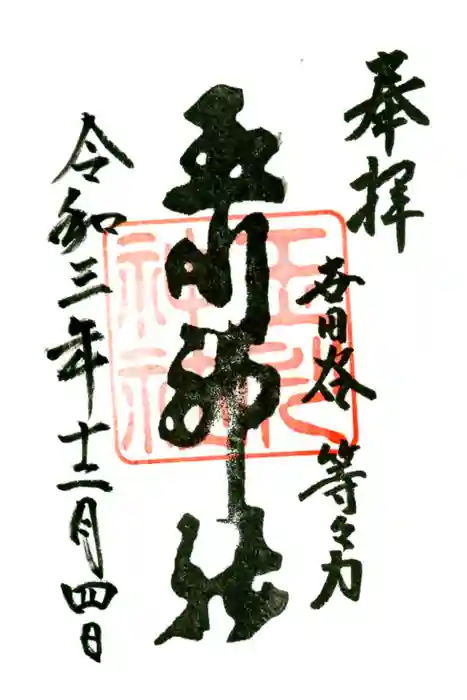 奉拝
世田谷 等々力
玉川神社
玉川
神社
令和三年十二月四日